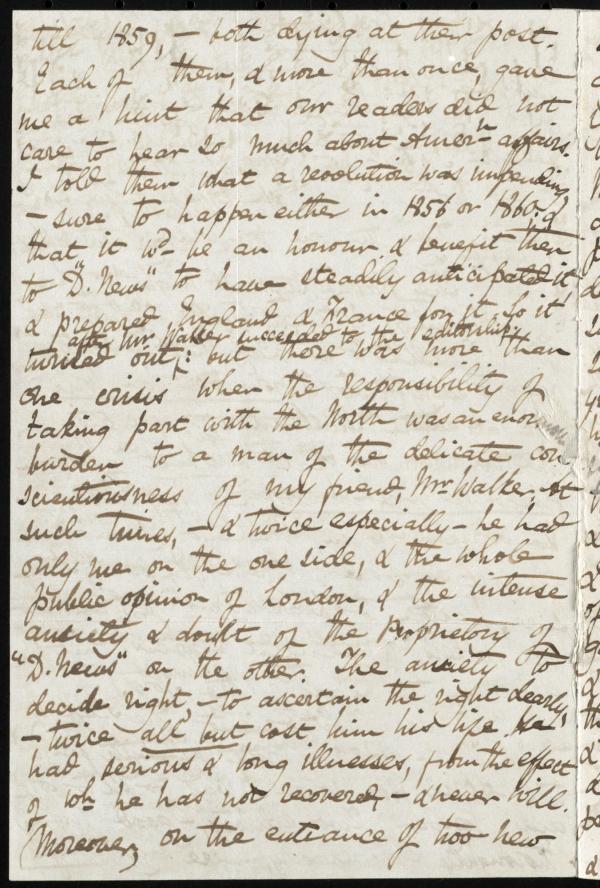 till 1859, – both dying at their post.
Each of them, & more than once, gave
me a hint that our readers did not
care to hear so much about Amern affairs.
I told them that a revolution was impending
– sure to happen either in 1856 or 1860: &
that it wd be an honour & benefit then
to "D. News" to have steadily anticipated it
& prepared England & France for it. So it
after Mr. Walker succeeded to the editorship
turned out; but there was more than
one crisis when the responsibility of
taking part with the North was an enormous
burden to a man of the delicate con-
scientiousness of my friend, Mr. Walker. At
such times, – & twice especially – he had
only me on the one side, & the whole
public opinion of London, & the intense
anxiety & doubt of the Proprietory of
"D. News" on the other. The anxiety to
decide right, – to ascertain the right clearly,
– twice all but cost him his life. He
had serious & long illnesses, from the effect
of wh he has not recovered, – & never will.
Moreover, on the entrance of two new